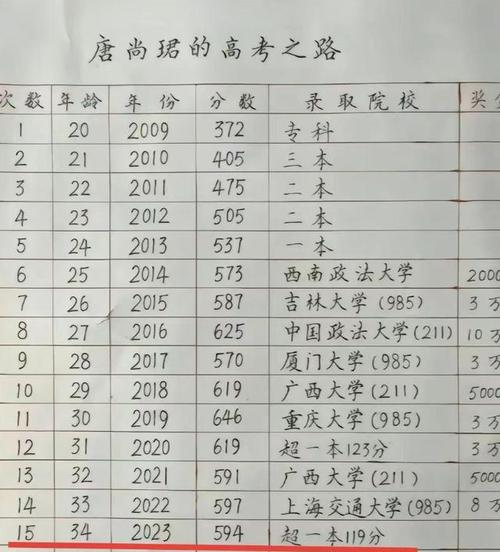 唐尚珺的高考之路
次数 年龄 年份 分数 录取院校 奖
1 20 2009 372 专科
2 21 2010 405 三本
3 22 2011 475 二本
4 23 2012 505 二本
5 24 2013 537 一本
6 25 2014 573 西南政法大学 2000
7 26 2015 587 吉林大学(985) 3万
8 27 2016 625 中国政法大学(211) 10万
9 28 2017 570 厦门大学(985) 3万
10 29 2018 619 广西大学(211) 5000
11 30 2019 646 重庆大学(985) 3万
12 31 2020 619 超一本123分 3万
13 32 2021 591 广西大学(211) 5000
14 33 2022 597 上海交通大学(985) 8万
15 34 2023 594 超一本119分